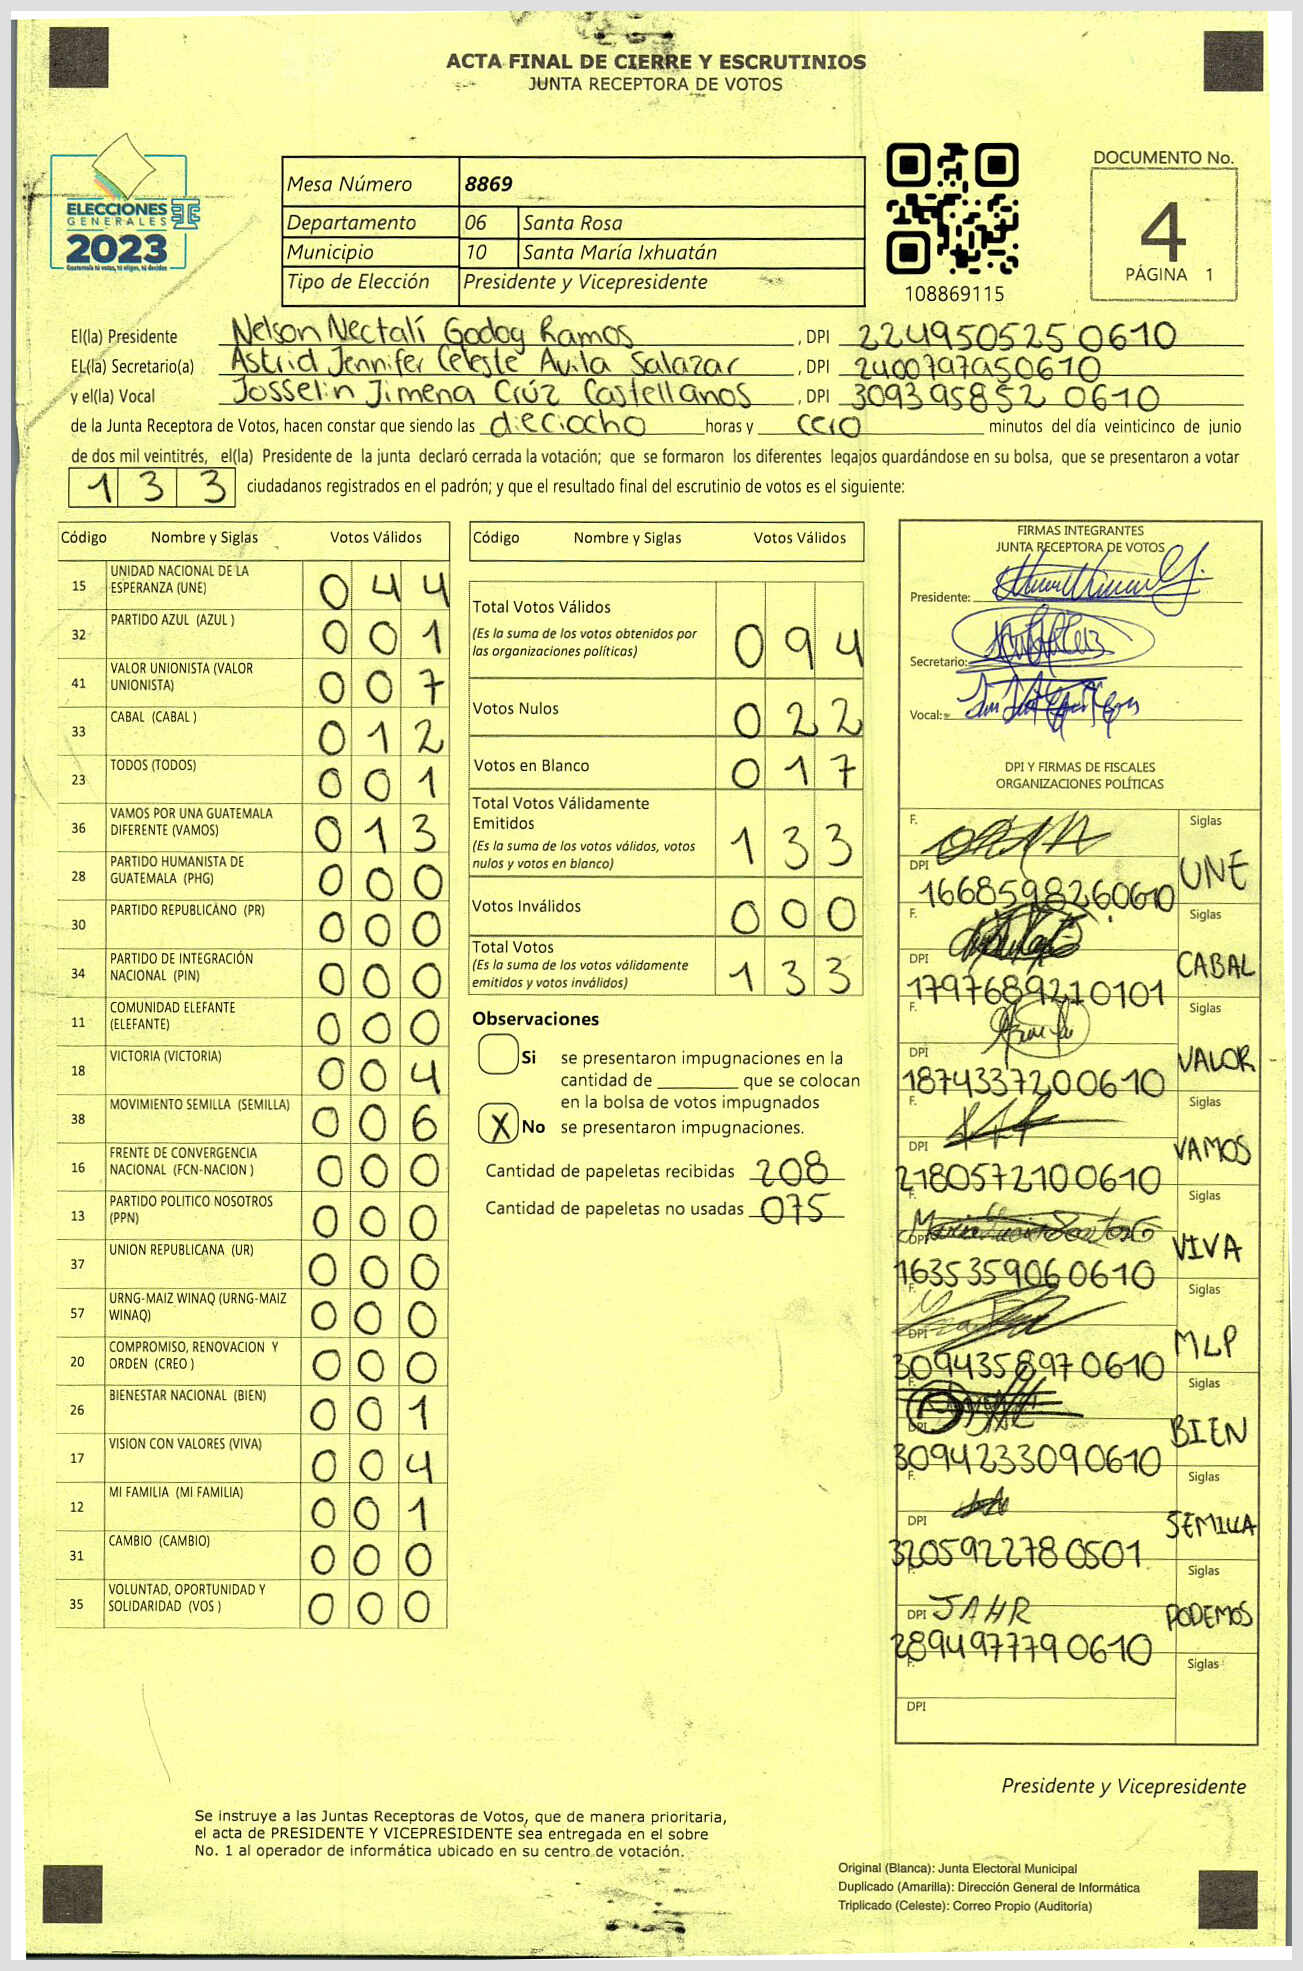 ACTA FINAL DE CIERRE Y ESCRUTINIOS
JUNTA RECEPTORA DE VOTOS
ELECCIONES
GENERALES
2023
Guatemala tú votas, tú eliges, tú decides
Mesa Número 8869
Departamento 06 Santa Rosa
Municipio 10 Santa María Ixhuatán
Tipo de Elección Presidente y Vicepresidente
108869115
DOCUMENTO No.
4
PÁGINA 1
El(la) Presidente Nelson Nectalí Godoy Ramos, DPI 2249505250610
EL(la) Secretario(a) Astrid Jennifer Celeste Avila Salazar, DPI 2400797950610
y el(la) Vocal Josselin Jimena Crúz Castellanos, DPI 3093958520610
de la Junta Receptora de Votos, hacen constar que siendo las dieciocho horas y cero minutos del día veinticinco de junio
de dos mil veintitrés, el(la) Presidente de la junta declaró cerrada la votación; que se formaron los diferentes legajos guardándose en su bolsa, que se presentaron a votar
133 ciudadanos registrados en el padrón; y que el resultado final del escrutinio de votos es el siguiente:
Código Nombre y Siglas Votos Válidos
15 UNIDAD NACIONAL DE LA ESPERANZA (UNE) 044
32 PARTIDO AZUL (AZUL ) 001
41 VALOR UNIONISTA (VALOR UNIONISTA) 007
33 CABAL (CABAL ) 012
23 TODOS (TODOS) 001
36 VAMOS POR UNA GUATEMALA DIFERENTE (VAMOS) 013
28 PARTIDO HUMANISTA DE GUATEMALA (PHG) 000
30 PARTIDO REPUBLICANO (PR) 000
34 PARTIDO DE INTEGRACIÓN NACIONAL (PIN) 000
11 COMUNIDAD ELEFANTE (ELEFANTE) 000
18 VICTORIA (VICTORIA) 004
38 MOVIMIENTO SEMILLA (SEMILLA) 006
16 FRENTE DE CONVERGENCIA NACIONAL (FCN-NACION ) 000
13 PARTIDO POLITICO NOSOTROS (PPN) 000
37 UNION REPUBLICANA (UR) 000
57 URNG-MAIZ WINAQ (URNG-MAIZ WINAQ) 000
20 COMPROMISO, RENOVACION Y ORDEN (CREO ) 000
26 BIENESTAR NACIONAL (BIEN) 001
17 VISION CON VALORES (VIVA) 004
12 MI FAMILIA (MI FAMILIA) 001
31 CAMBIO (CAMBIO) 000
35 VOLUNTAD, OPORTUNIDAD Y SOLIDARIDAD (VOS ) 000
Código Nombre y Siglas Votos Válidos
Total Votos Válidos 094
(Es la suma de los votos obtenidos por
las organizaciones políticas)
Votos Nulos 022
Votos en Blanco 017
Total Votos Válidamente
Emitidos 133
(Es la suma de los votos válidos, votos
nulos y votos en blanco)
Votos Inválidos 000
Total Votos 133
(Es la suma de los votos válidamente
emitidos y votos inválidos)
Observaciones
Si se presentaron impugnaciones en la
cantidad de ________ que se colocan
en la bolsa de votos impugnados
X No se presentaron impugnaciones.
Cantidad de papeletas recibidas 208
Cantidad de papeletas no usadas 075
FIRMAS INTEGRANTES
JUNTA RECEPTORA DE VOTOS
Presidente:
Secretario:
Vocal:
DPI Y FIRMAS DE FISCALES
ORGANIZACIONES POLÍTICAS
F. Siglas
DPI 1668598260610 UNE
F. Siglas
DPI 1797689210101 CABAL
F. Siglas
DPI 1874337200610 VALOR
F. Siglas
DPI 2180572100610 VAMOS
F. Siglas
DPI 1635359060610 VIVA
F. Siglas
DPI 3094358970610 MLP
F. Siglas
DPI 3094233090610 BIEN
F. Siglas
DPI 3205922780501 SEMILLA
F. Siglas
JAHR
DPI 2894977790610 PODEMOS
F. Siglas
DPI
Presidente y Vicepresidente
Se instruye a las Juntas Receptoras de Votos, que de manera prioritaria,
el acta de PRESIDENTE Y VICEPRESIDENTE sea entregada en el sobre
No. 1 al operador de informática ubicado en su centro de votación.
Original (Blanca): Junta Electoral Municipal
Duplicado (Amarilla): Dirección General de Informática
Triplicado (Celeste): Correo Propio (Auditoría)